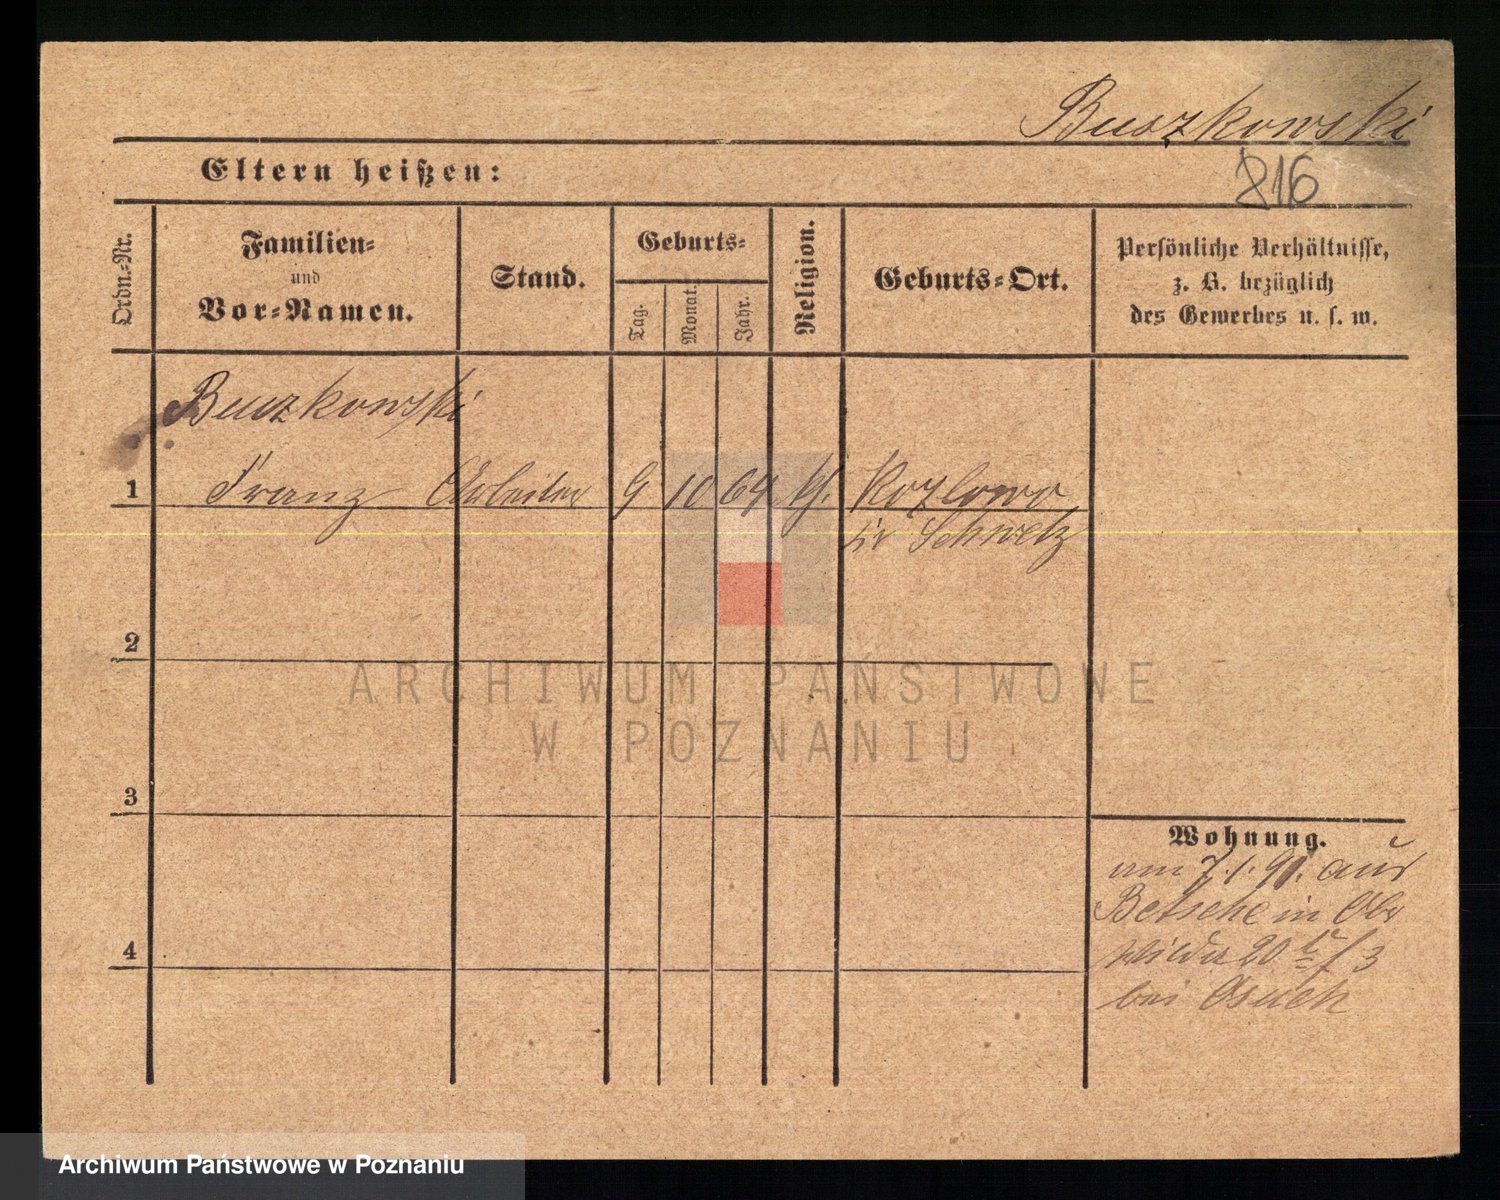 Buszkowski
Eltern heißen:
816
Ordn.-Nr.
Familien-
und
Vor-Namen.
Stand.
Geburts-
Tag.
Monat.
Jahr.
Religion.
Geburts-Ort.
Persönliche Verhältnisse,
z. B. bezüglich
des Gewerbes u. s. w.
Buszkowski
1 Franz Arbeiter 9 10 64 Kozlowo
Schwetz
2
ARCHIWUM PAŃSTWOWE
W POZNANIU
3
Wohnung.
am 7.1.91. aus
Betsche in Ober
Wilda 20
4
bei Osuch
Archiwum Państwowe w Poznaniu